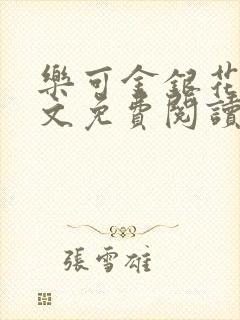 樂可金銀花
文免費閱讀
張雪雄